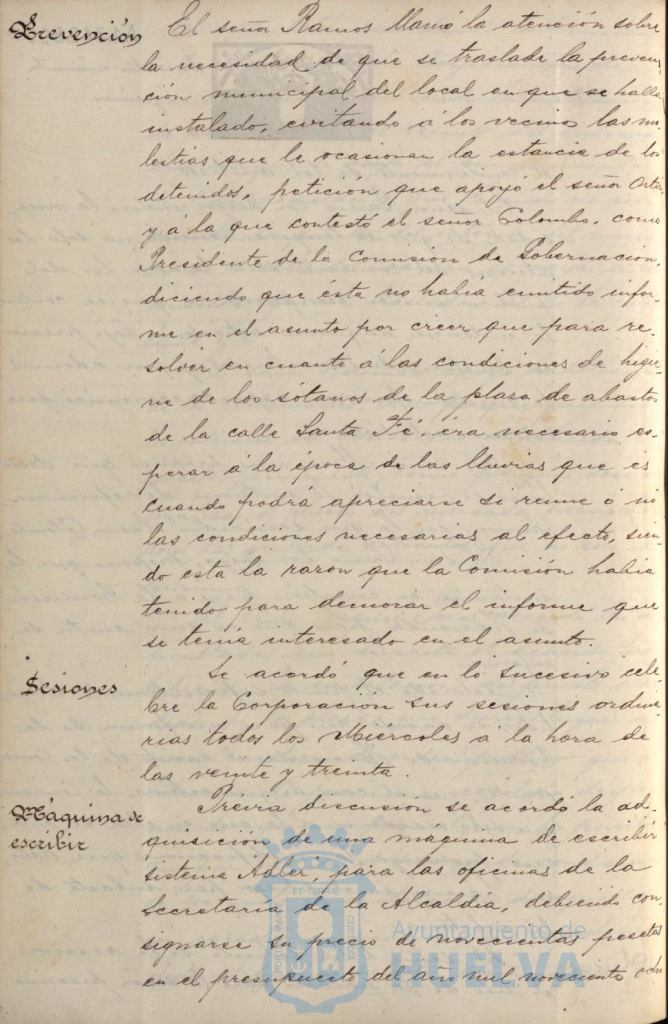 Prevención
El señor Ramos llamó la atención sobre
la necesidad de que se traslade la preven-
ción municipal del local en que se halla
instalado, evitando á los vecinos las mo-
lestias que le ocasionan la estancia de los
detenidos, petición que apoyó el señor Ortiz
y á la que contestó el señor Colombo, como
Presidente de la Comisión de Gobernación,
diciendo que ésta no había emitido infor-
me en el asunto por creer que para re-
solver en cuanto á las condiciones de higie-
ne de los sótanos de la plaza de abastos
de la calle Santa Fé, era necesario es-
perar á la época de las lluvias que es
cuando podrá apreciarse si reune ó nó
las condiciones necesarias al efecto, sien-
do esta la razon que la Comisión había
tenido para demorar el informe que
se tenía interesado en el asunto.
Sesiones
Se acordó que en lo sucesivo cele-
bre la Corporación sus sesiones ordina-
rias todos los Miércoles á la hora de
las veinte y treinta.
Máquina de
escribir
Prévia discusión se acordó la ad-
quisición de una máquina de escribir
sistema Adler, para las oficinas de la
Secretaría de la Alcaldía, debiendo con-
signarse su precio de novecientas pesetas
en el presupuesto del año mil novecientos ocho
Ayuntamiento de
HUELVA